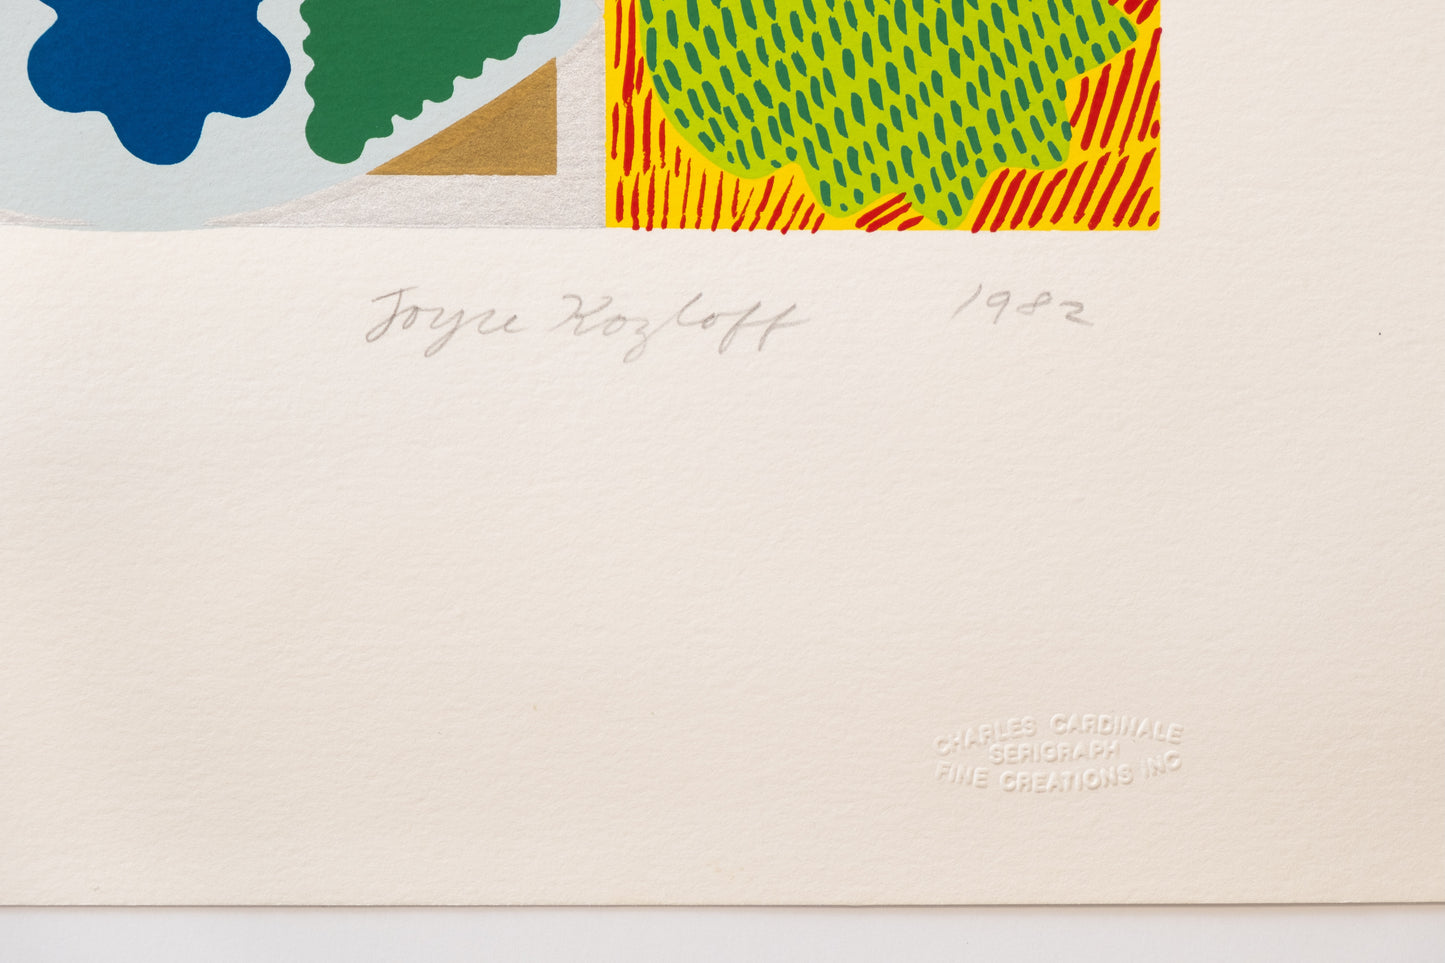 Joyce Kozloff 1982
CHARLES CARDINALE
SERIGRAPH
FINE CREATIONS INC